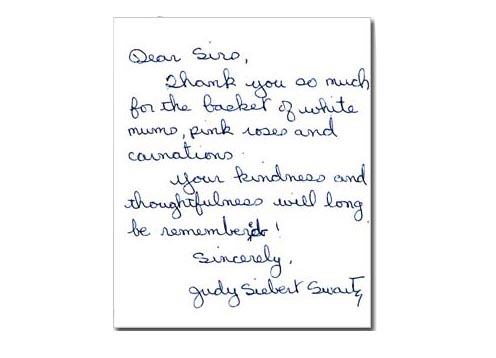 Dear Sirs,
Thank you so much
for the basket of white
mums, pink roses and
carnations.
Your kindness and
thoughtfulness will long
be remembered!
Sincerely,
Judy Siebert Swartz